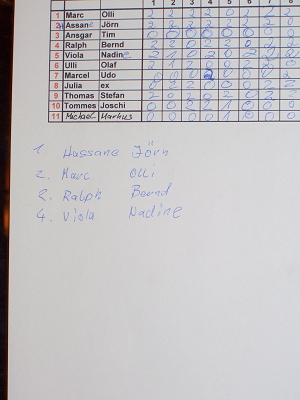 1 2 3 4 5 6 7 8
1 Marc Olli 2 2 2 2 0 2
2 Assane Jörn 2 2 2 2 2 2
3 Ansgar Tim 0 0 0 0 0 0 0
4 Ralph Bernd 2 2 0 2
5 Viola Nadine 2 1 0 2 0
6 Ulli Olaf 2 1 2 0
7 Marcel Udo 0 0 0
8 Julia ex 0 2 2 0 0 0
9 Thomas Stefan 2 0 2 0 2
10 Tommes Joschi 0 0 2 2 1 0 0 0
11 Michael Markus 0 0 0 0 1 0 0 0
1. Hassane Jörn
2. Marc Olli
3. Ralph Bernd
4. Viola Nadine